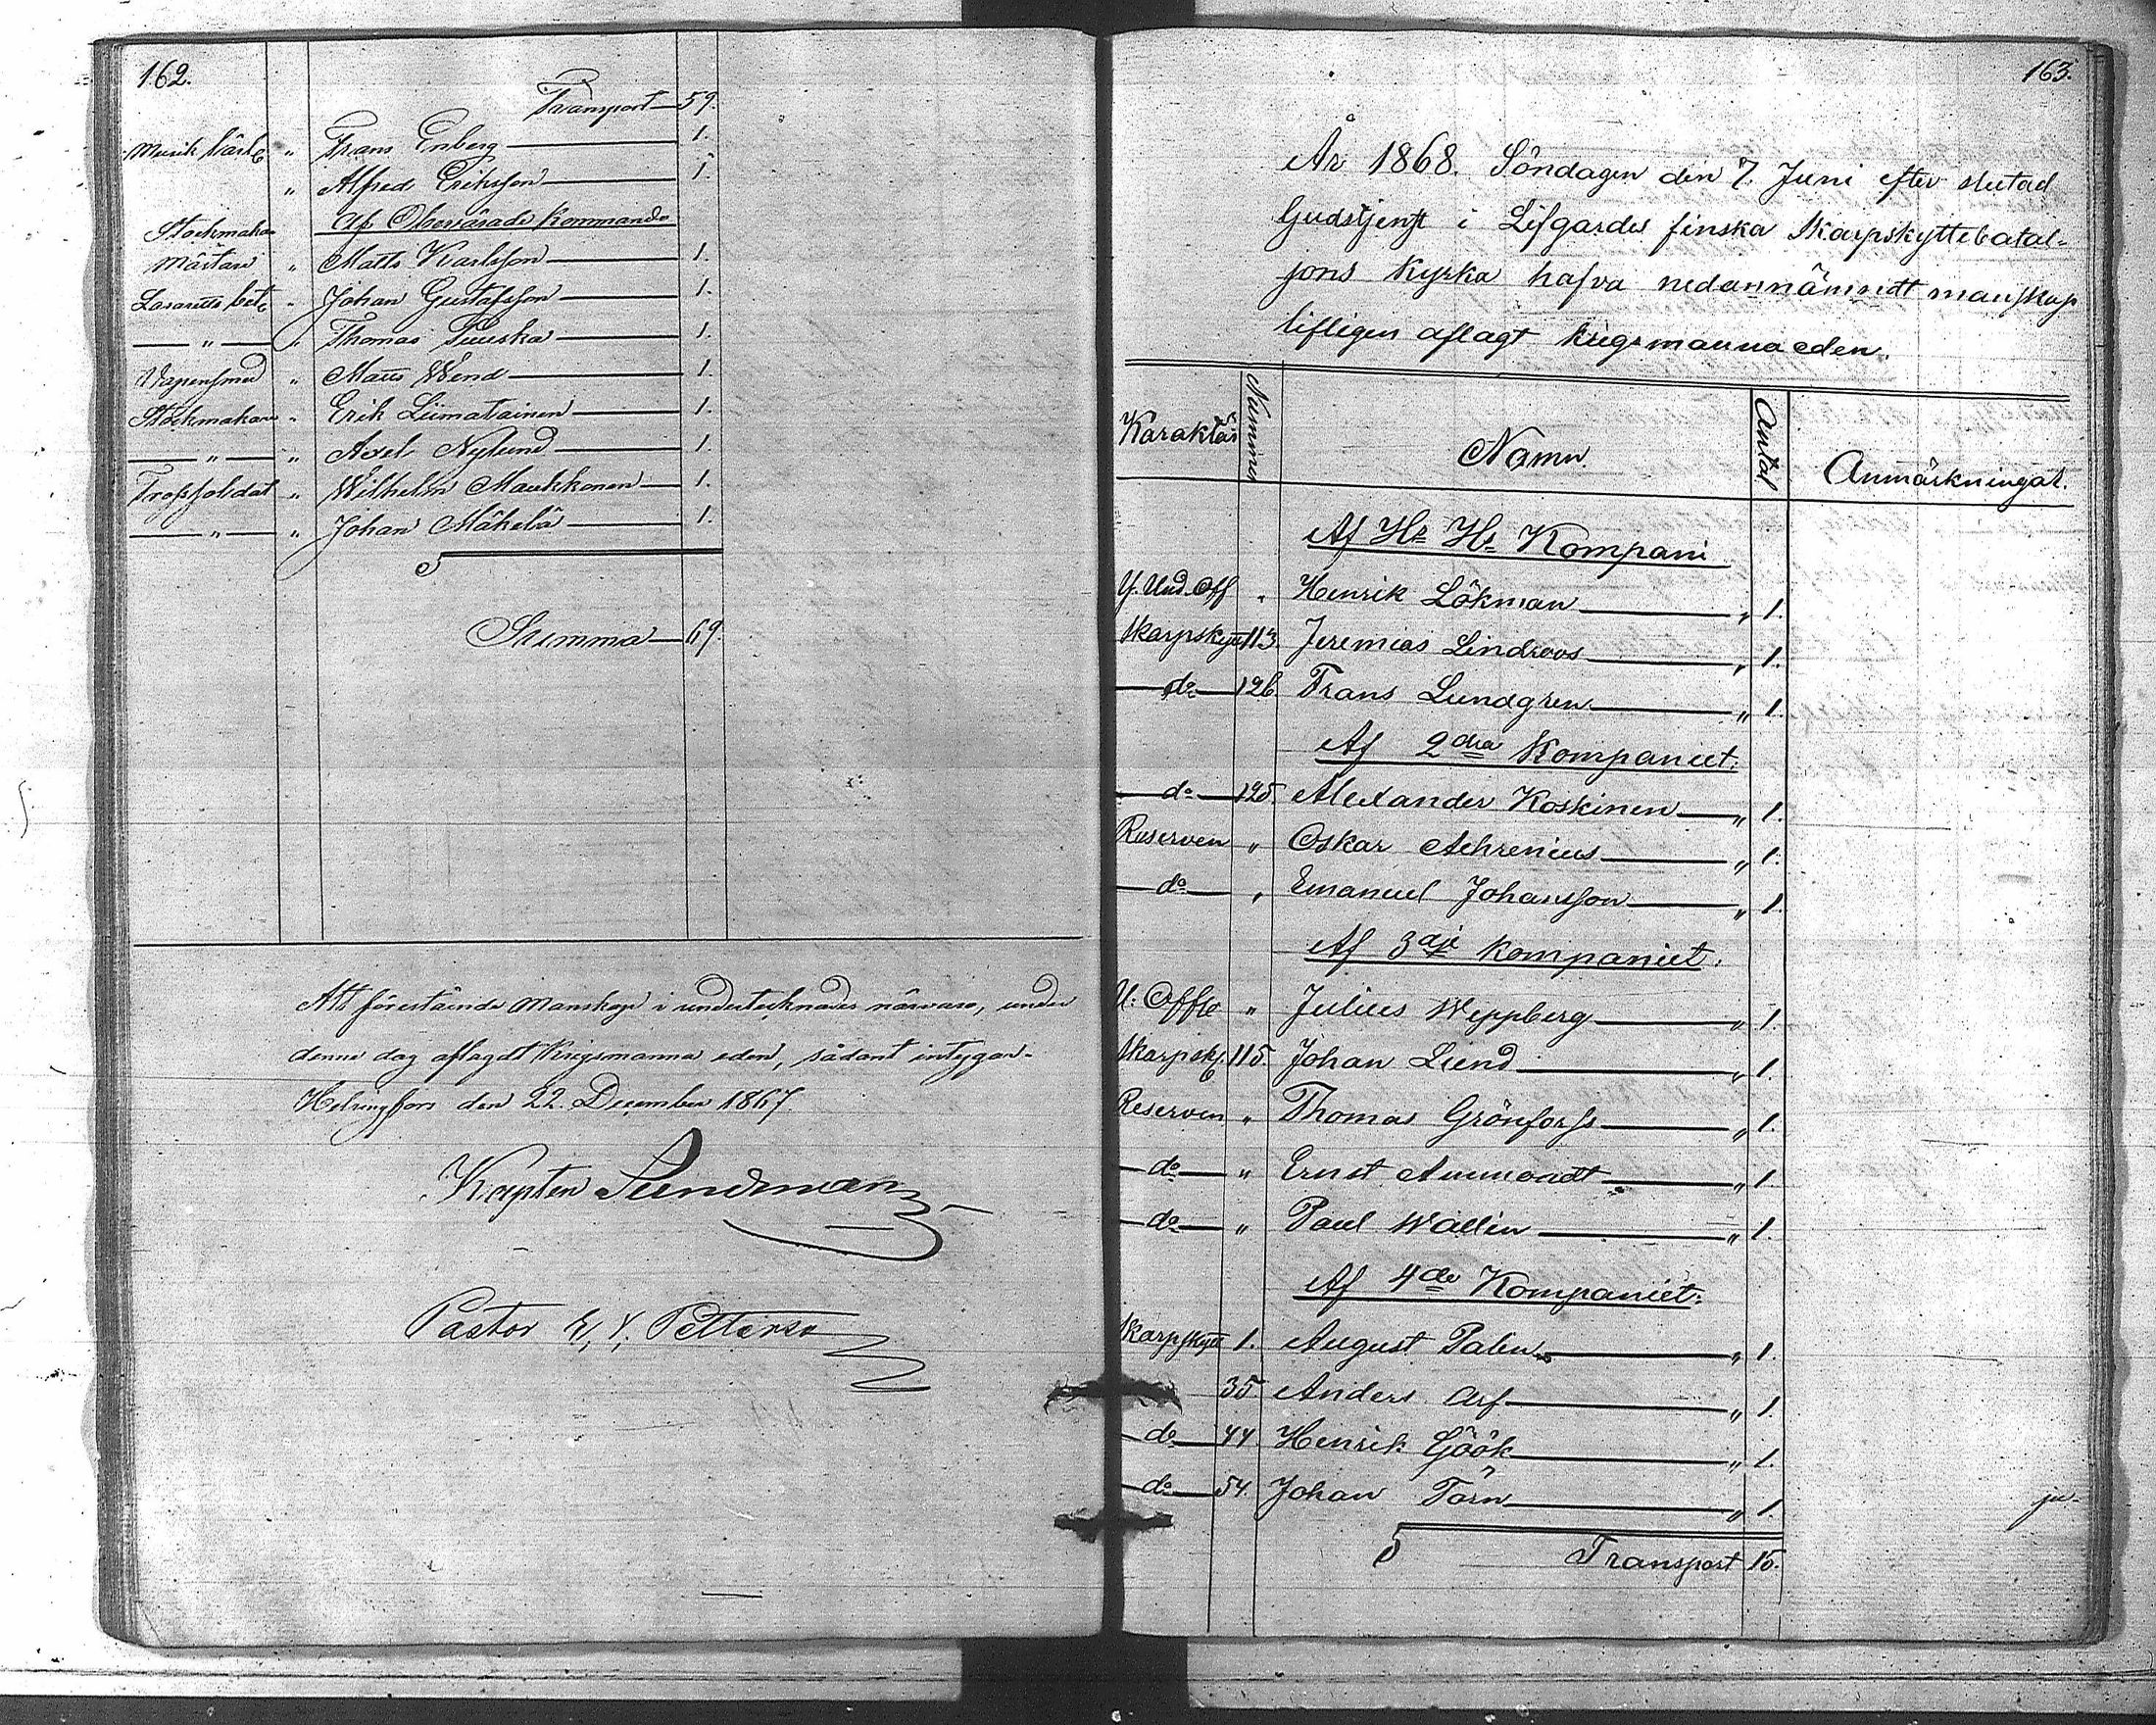 162.
Transport 59.
Musik lärl. " Frans Enberg 1.
" Alfred Eriksson 1.
Af Obevärade Kommando
Stockmakare
Mästare " Matts Karlsson 1.
Lasaretts betj. " Johan Gustafsson 1.
" " Thomas 1.
Vapensmed " Matts Wend 1.
Stockmakare " Erik Liimatainen 1.
" " Axel Nylund 1.
Trossoldat " Wilhelm Maukkonen 1.
" " Johan Mäkelä 1.
Summa 69.
Att förestående Manskap i undertecknades närvaro, under
denna dag aflagdt Krigsmanna eden, sådant intygar.
Helsingfors den 22. December 1867.
Kapten Sundman
Pastor Petterson
163.
År 1868. Söndagen den 7. Juni efter slutad
Gudstjenst i Lifgardes finska Skarpskyttebatal=
jons Kyrka hafva nedannämndt manskap
lifligen aflagt krigsmanna eden.
Karaktär Nummer Namn. Antal Anmärkningar.
Af Hs Hs Kompani
Y. Und. Off " Henrik Lökman " 1.
Skarpskytt 113. Jeremias Lindroos " 1.
do 126. Frans Lundgren " 1.
Af 2dra Kompaniet.
do 125. Alexander Koskinen " 1.
Reserven " Oskar Achrenius " 1.
do " Emanuel Johansson " 1.
Af 3dje kompaniet.
U. Off " Julius Weppberg " 1.
Skarpsk. 115. Johan Lund " 1.
Reserven " Thomas Grönforss " 1.
do " Ernst Ammondt " 1.
do " Paul Wallin " 1.
Af 4de Kompaniet.
Skarpskytt 1. August Palin " 1.
35 Anders Arf " 1.
do 44 Henrik Göök " 1.
do 54. Johan Törn " 1.
Transport 15.